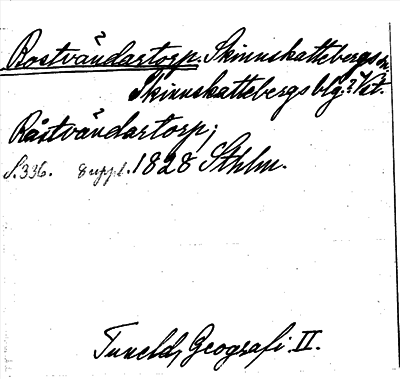 Rostvändartorp. Skinnskattebergs sn.
Skinnskattebergs blg? Vst.
Råstvändartorp;
S. 336. 8 uppl. 1828 Sthlm.
Tuneld, Geografi II.